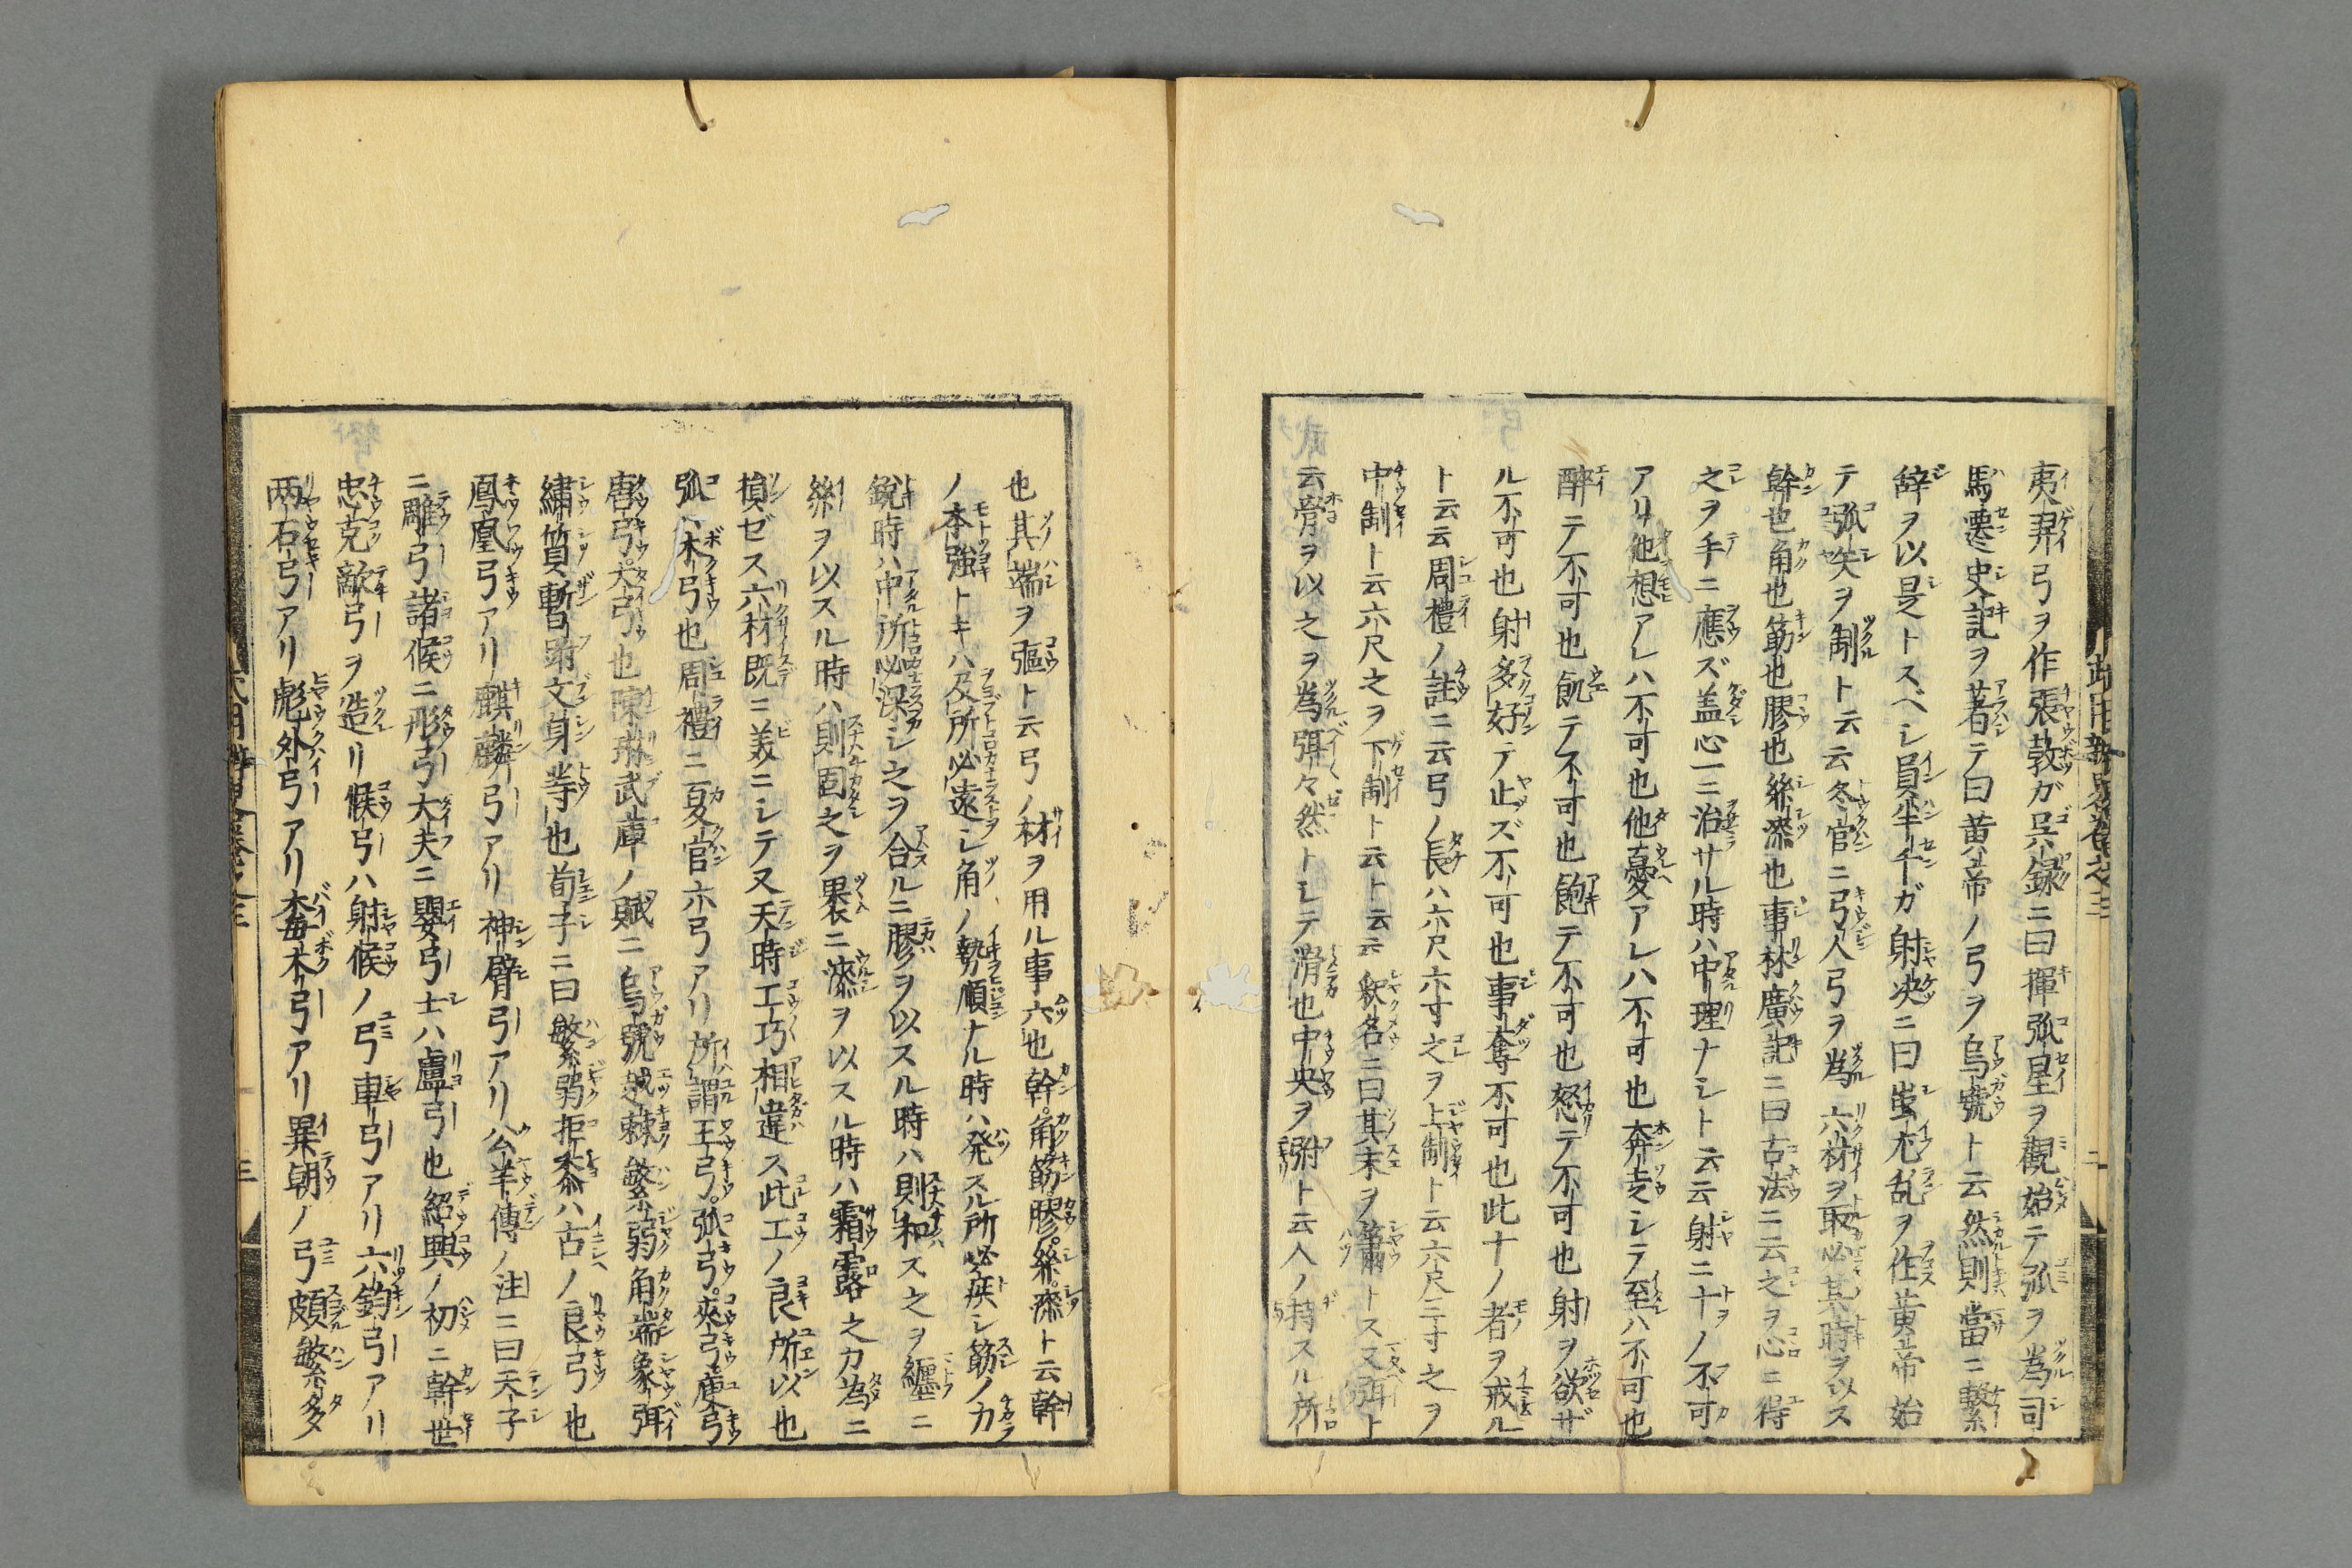 夷羿弓ヲ作張敦ガ呉録ニ曰揮弧星ヲ觀始テ弧ヲ為司
馬遷史記ヲ著テ曰黄帝ノ弓ヲ烏號ト云然則當ニ繋
辞ヲ以是トスベシ員半千ガ射决ニ曰蚩尤乱ヲ作黄帝始
テ弧矢ヲ制ト云云冬官ニ弓人弓ヲ為六材ヲ取必其時ヲ以ス
幹也角也筋也膠也絲漆也事林廣記ニ曰古法ニ云之ヲ心ニ得
之ヲ手ニ應ズ盖心一ニ治サル時ハ中理ナシト云云射ニ十ノ不可
アリ他想アレハ不可也他憂アレハ不可也奔走シテ至ハ不可也
醉テ不可也飢テ不可也飽テ不可也怒テ不可也射ヲ欲ザ
ル不可也射多好テ止ズ不可也事奪不可也此十ノ者ヲ戒ル
ト云云周禮ノ註ニ云弓ノ長ハ六尺六寸之ヲ上制ト云六尺三寸之ヲ
中制ト云六尺之ヲ下制ト云ト云云釈名ニ曰其末ヲ簫トス又弭ト
云骨ヲ以之ヲ為弭々然トシテ滑也中央ヲ弣ト云人ノ持スル所
也其端ヲ彄ト云弓ノ材ヲ用ル事六也幹角筋膠絲漆ト云幹
ノ本強トキハ及所必遠シ角ノ勢順ナル時ハ発スル所必疾シ筋ノ力
鋭時ハ中所必深シ之ヲ合ルニ膠ヲ以スル時ハ則和ス之ヲ纒ニ
絲ヲ以スル時ハ則固之ヲ裹ニ漆ヲ以スル時ハ霜露之力為ニ
損ゼス六材既ニ美ニシテ又天時工巧相違ス此工ノ良所以也
弧ハ木弓也周禮ニ夏官六弓アリ所謂王弓弧弓夾弓庾弓
唐弓大弓也陳琳武庫ノ賦ニ烏號越棘繁弱角端象弭
繡質暫弣文身等也荀子ニ曰繁弱拒黍ハ古ノ良弓也
鳳凰弓アリ麒麟弓アリ神臂弓アリ公羊傳ノ注ニ曰天子
ニ雕弓諸候ニ彤弓大夫ニ嬰弓士ハ盧弓也紹興ノ初ニ幹世
忠克敵弓ヲ造リ候弓ハ射候ノ弓車弓アリ六鈞弓アリ
両石弓アリ彪外弓アリ梅木弓アリ異朝ノ弓頗繁多